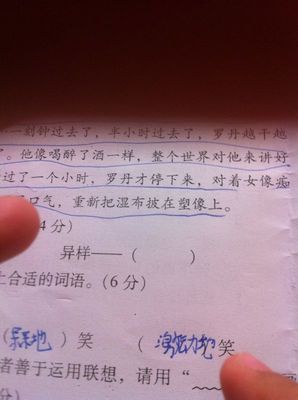 一刻钟过去了，半小时过去了，罗丹越干越
。他像喝醉了酒一样，整个世界对他来讲好
过了一个小时，罗丹才停下来，对着女像痴
口气，重新把湿布披在塑像上。
4分）
异样——（ ）
上合适的词语。（6分）
（呆呆地）笑 （ 笑
者善于运用联想，请用“
分）